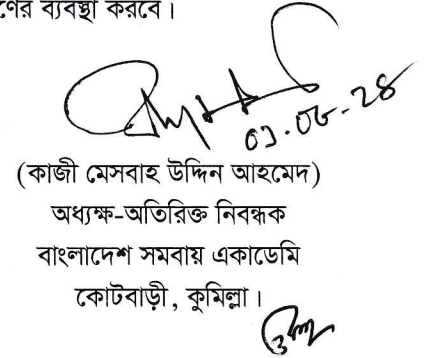 ণের ব্যবস্থা করবে।
(কাজী মেসবাহ উদ্দিন আহমেদ)
অধ্যক্ষ-অতিরিক্ত নিবন্ধক
বাংলাদেশ সমবায় একাডেমি
কোটবাড়ী, কুমিল্লা।